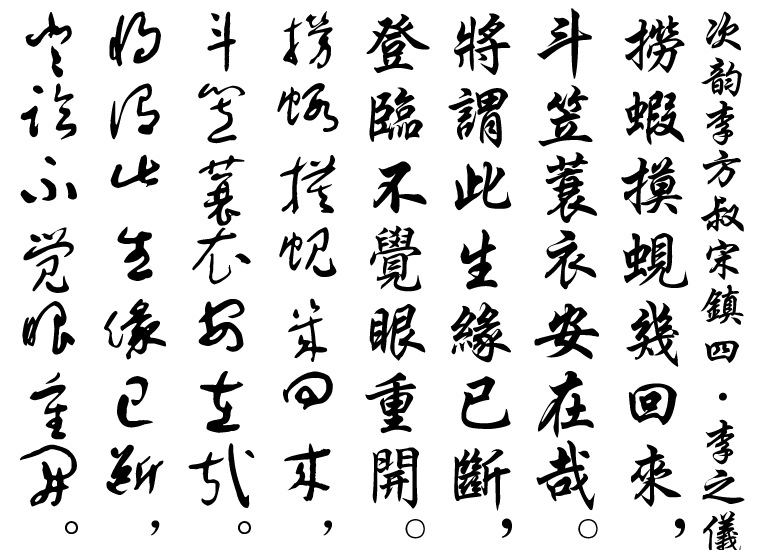 次韵李方叔宋鎮四·李之儀
撈蝦摸蜆幾回來，
斗笠蓑衣安在哉。
將謂此生緣已斷，
登臨不覺眼重開。
撈蝦摸蜆幾回來，
斗笠蓑衣安在哉。
將謂此生緣已斷，
登臨不覺眼重開。